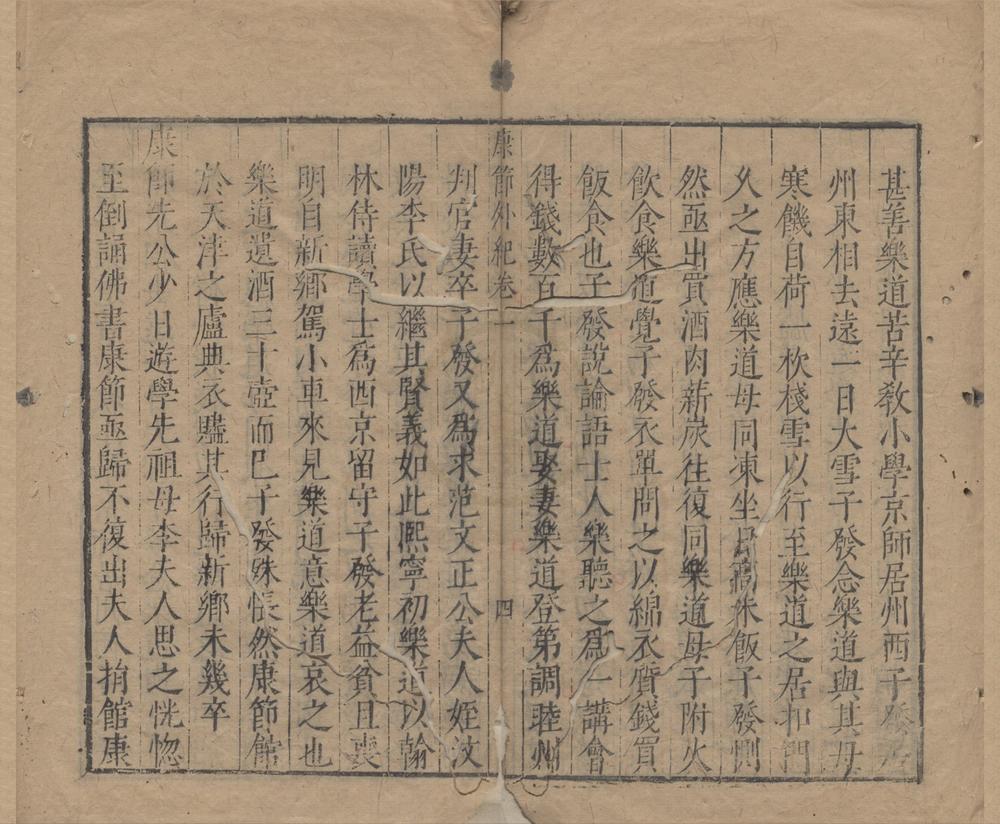 甚善樂道苦辛教小學京師居州西子發居
州東相去遠一日大雪子發念樂道與其母
寒餓自荷一杴棧雪以行至樂道之居扣門
久之方應樂道母同凍坐日高未飯子發惻
然亟出買酒肉薪炭往復同樂道母子附火
飲食樂道覺子發衣單問之以綿衣質錢買
飯食也子發說論語士人樂聽之爲一講會
得錢數百千爲樂道娶妻樂道登第調睦州
康節外紀卷一
四
判官妻卒子發又爲求范文正公夫人姪汶
陽李氏以繼其賢義如此熈寧初樂道以翰
林侍讀學士爲西京留守子發老益貧且喪
明自新鄉駕小車來見樂道意樂道哀之也
樂道遺酒三十壺而已子發殊悵然康節館
於天津之廬典衣贐其行歸新鄉未幾卒
康節先公少日遊學先祖母李夫人思之恍惚
至倒誦佛書康節亟歸不復出夫人捐館康